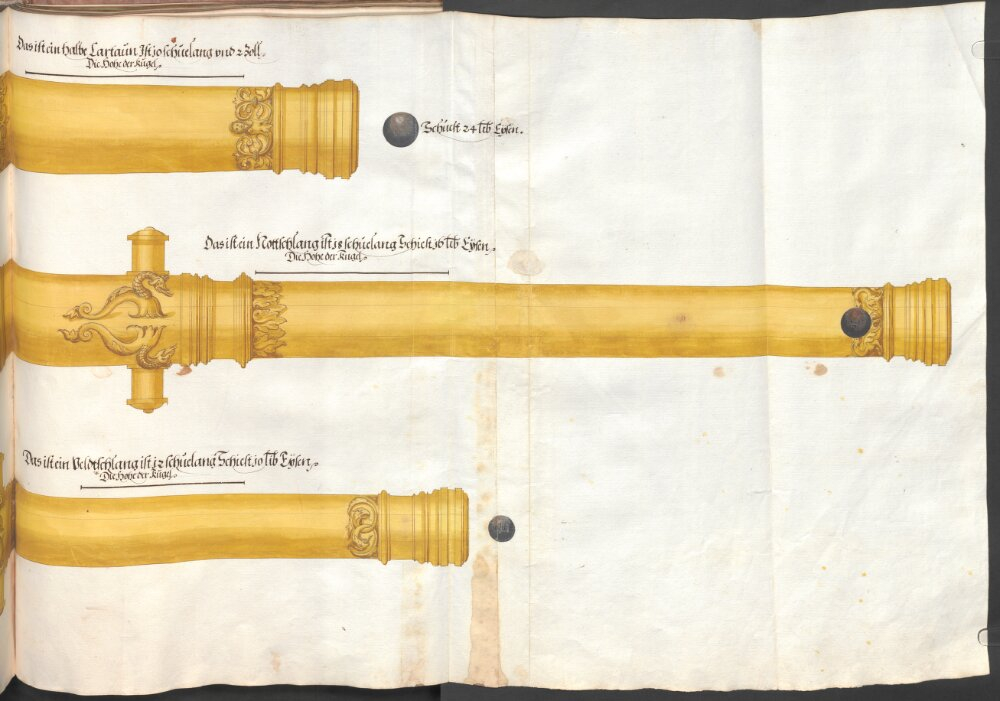 Das ist ein halbe Cartaun Ist 10 schuelang vnd 2 Zoll.
Die Hohe der Kugel.
Schiest 24 lib Eysen.
Das ist ein Nottschlang ist 18 schuelang Schiest 16 lib Eysen.
Die Hohe der Kugel.
Das ist ein Veldtschlang ist 12 schuelang Schiest 10 lib Eysen.
Die Hohe der Kugel.